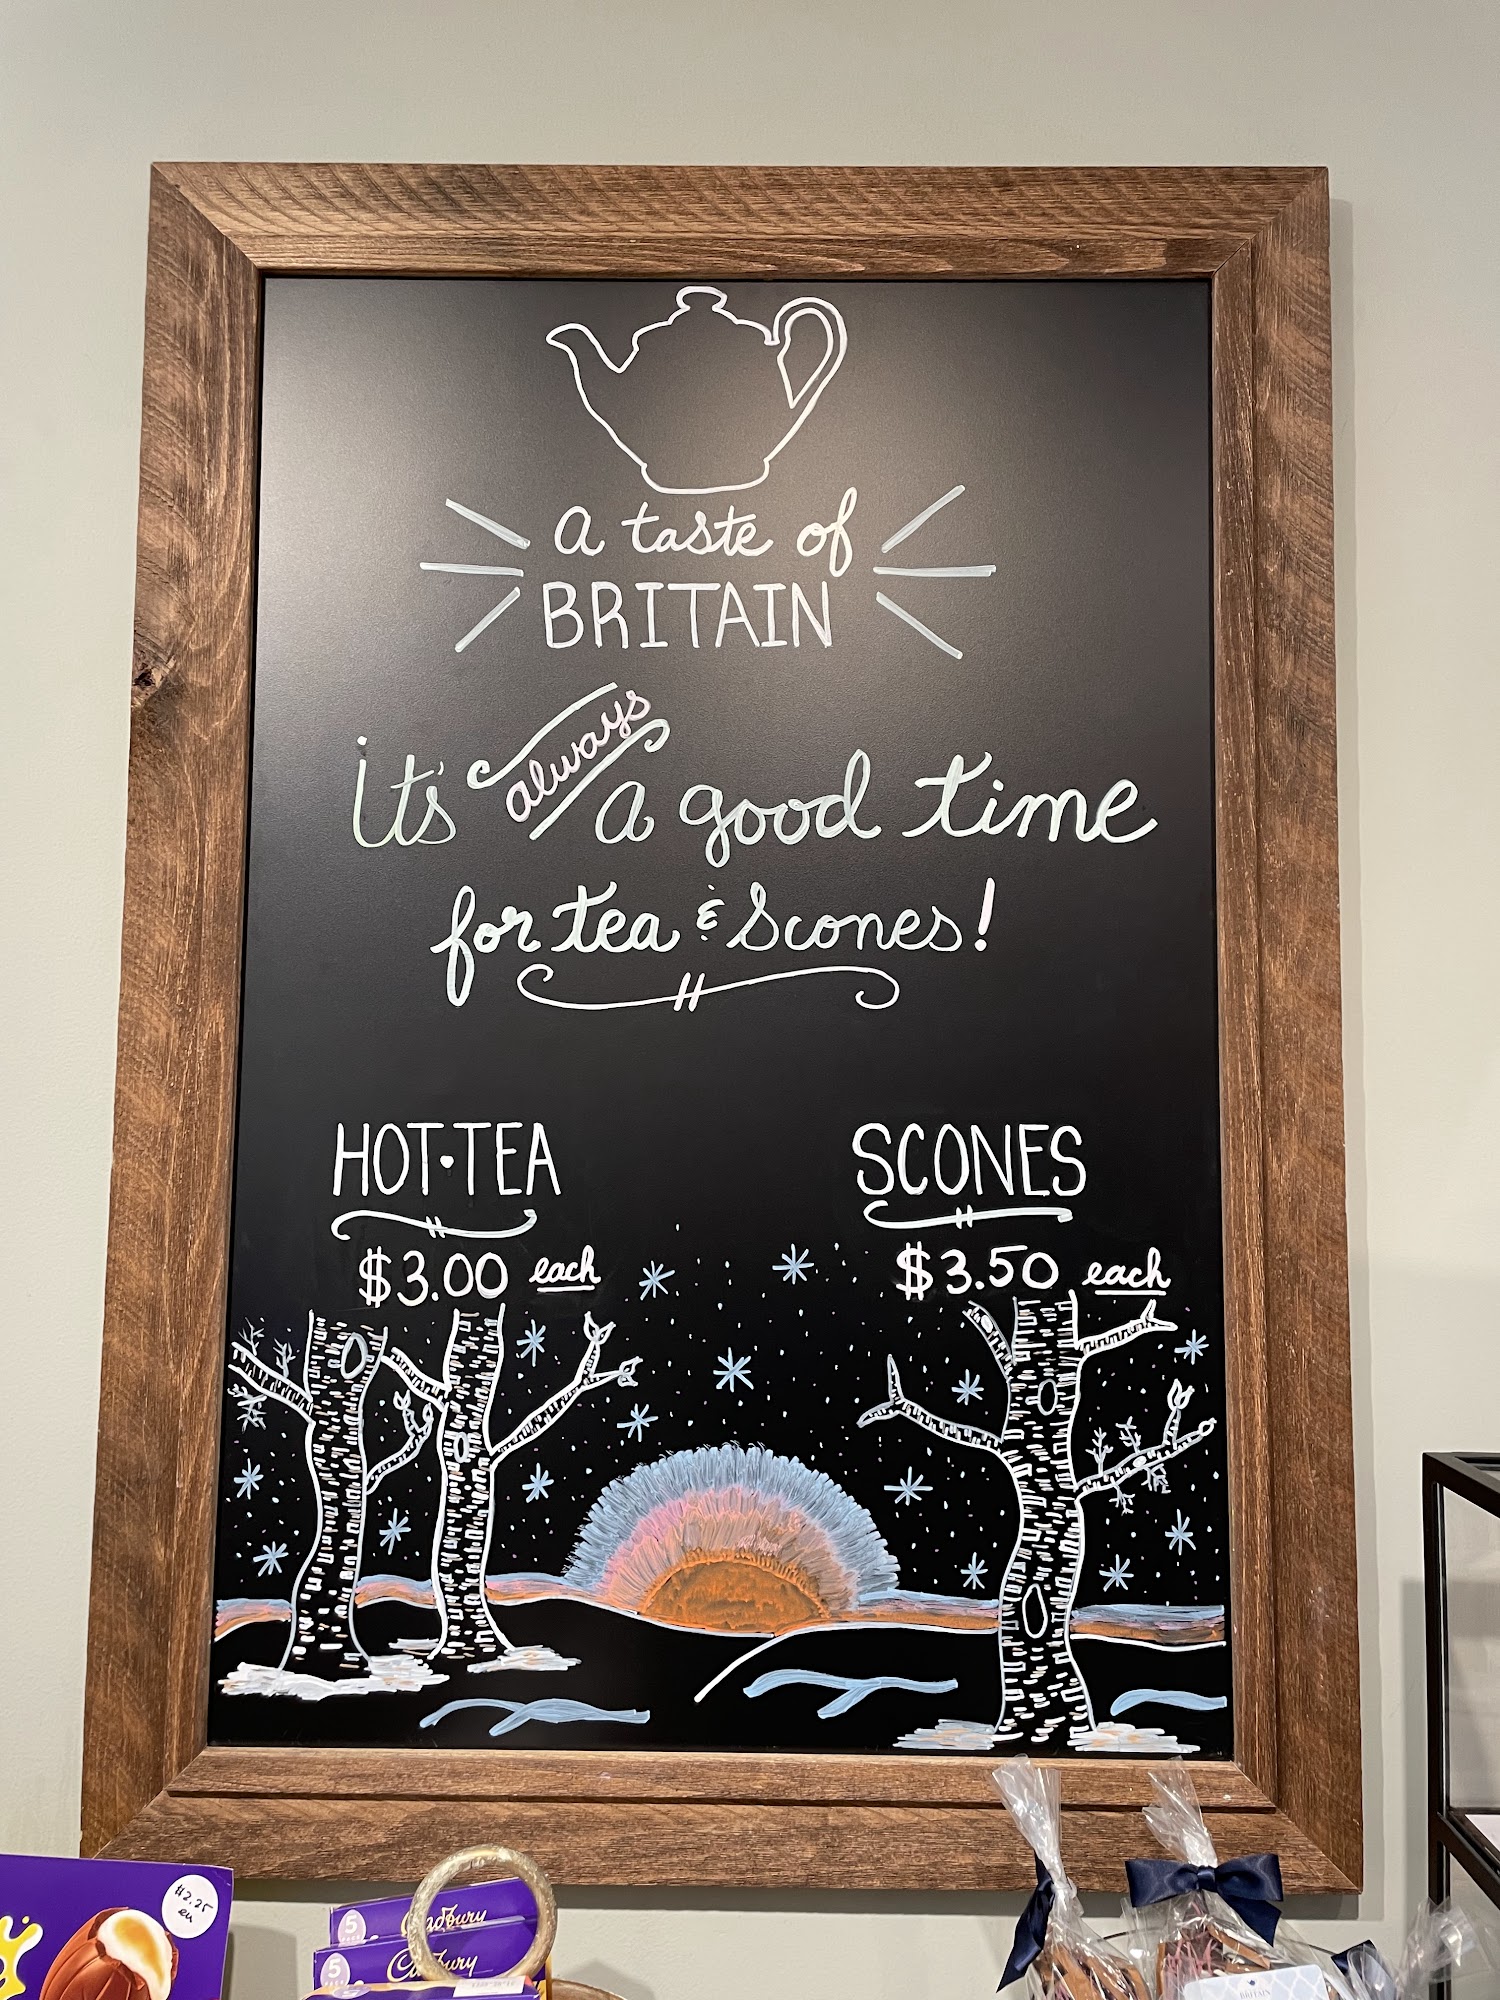 a taste of
BRITAIN
it's always a good time
for tea & Scones!
HOT·TEA
SCONES
$3.00 each
$3.50 each
$2.25
5
Cadbury
5
Cadbury
BRITAIN